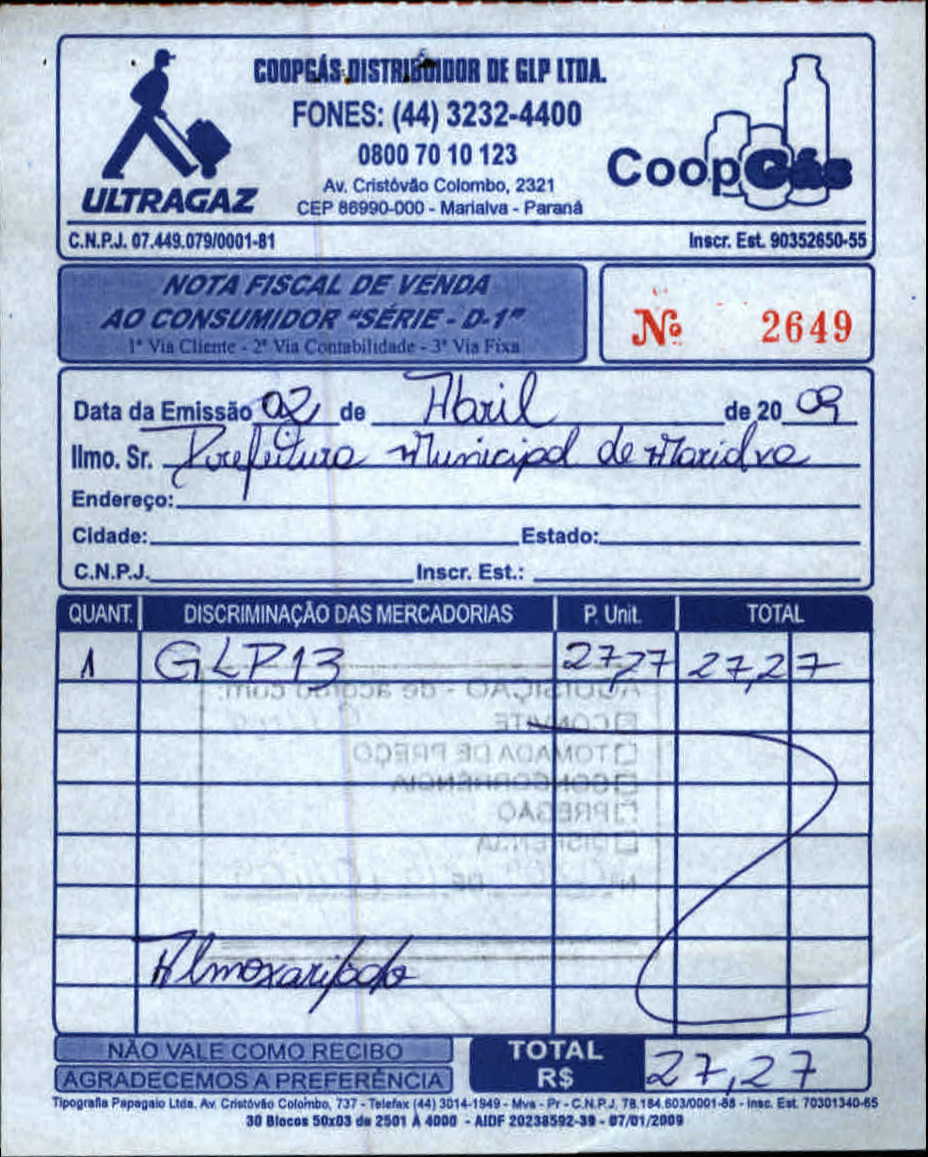 COOPGÁS DISTRIBUIDOR DE GLP LTDA.
FONES: (44) 3232-4400
0800 70 10 123
Av. Cristóvão Colombo, 2321
CEP 86990-000 - Marialva - Paraná
ULTRAGAZ
CoopGás
C.N.P.J. 07.449.079/0001-81
Inscr. Est. 90352650-55
NOTA FISCAL DE VENDA
AO CONSUMIDOR "SÉRIE - D-1"
1ª Via Cliente - 2ª Via Contabilidade - 3ª Via Fixa
Nº 2649
Data da Emissão 02 de Abril de 20 09
Ilmo. Sr. Prefeitura Municipal de Marialva
Endereço:
Cidade: Estado:
C.N.P.J. Inscr. Est.:
QUANT. DISCRIMINAÇÃO DAS MERCADORIAS P. Unit. TOTAL
1 GLP13 27,27 27,27
AQUISIÇÃO - de acordo com:
CONVITE
TOMADA DE PREÇO
CONCORRÊNCIA
PREGÃO
DISPENSA
Nº DE
Almoxarifado
NÃO VALE COMO RECIBO
AGRADECEMOS A PREFERÊNCIA
TOTAL R$ 27,27
Tipografia Papagaio Ltda. Av. Cristóvão Colombo, 737 - Telefax (44) 3014-1949 - Mva - Pr - C.N.P.J. 78.184.603/0001-88 - Insc. Est. 70301340-65
30 Blocos 50x03 de 2501 À 4000 - AIDF 20238592-39 - 07/01/2009